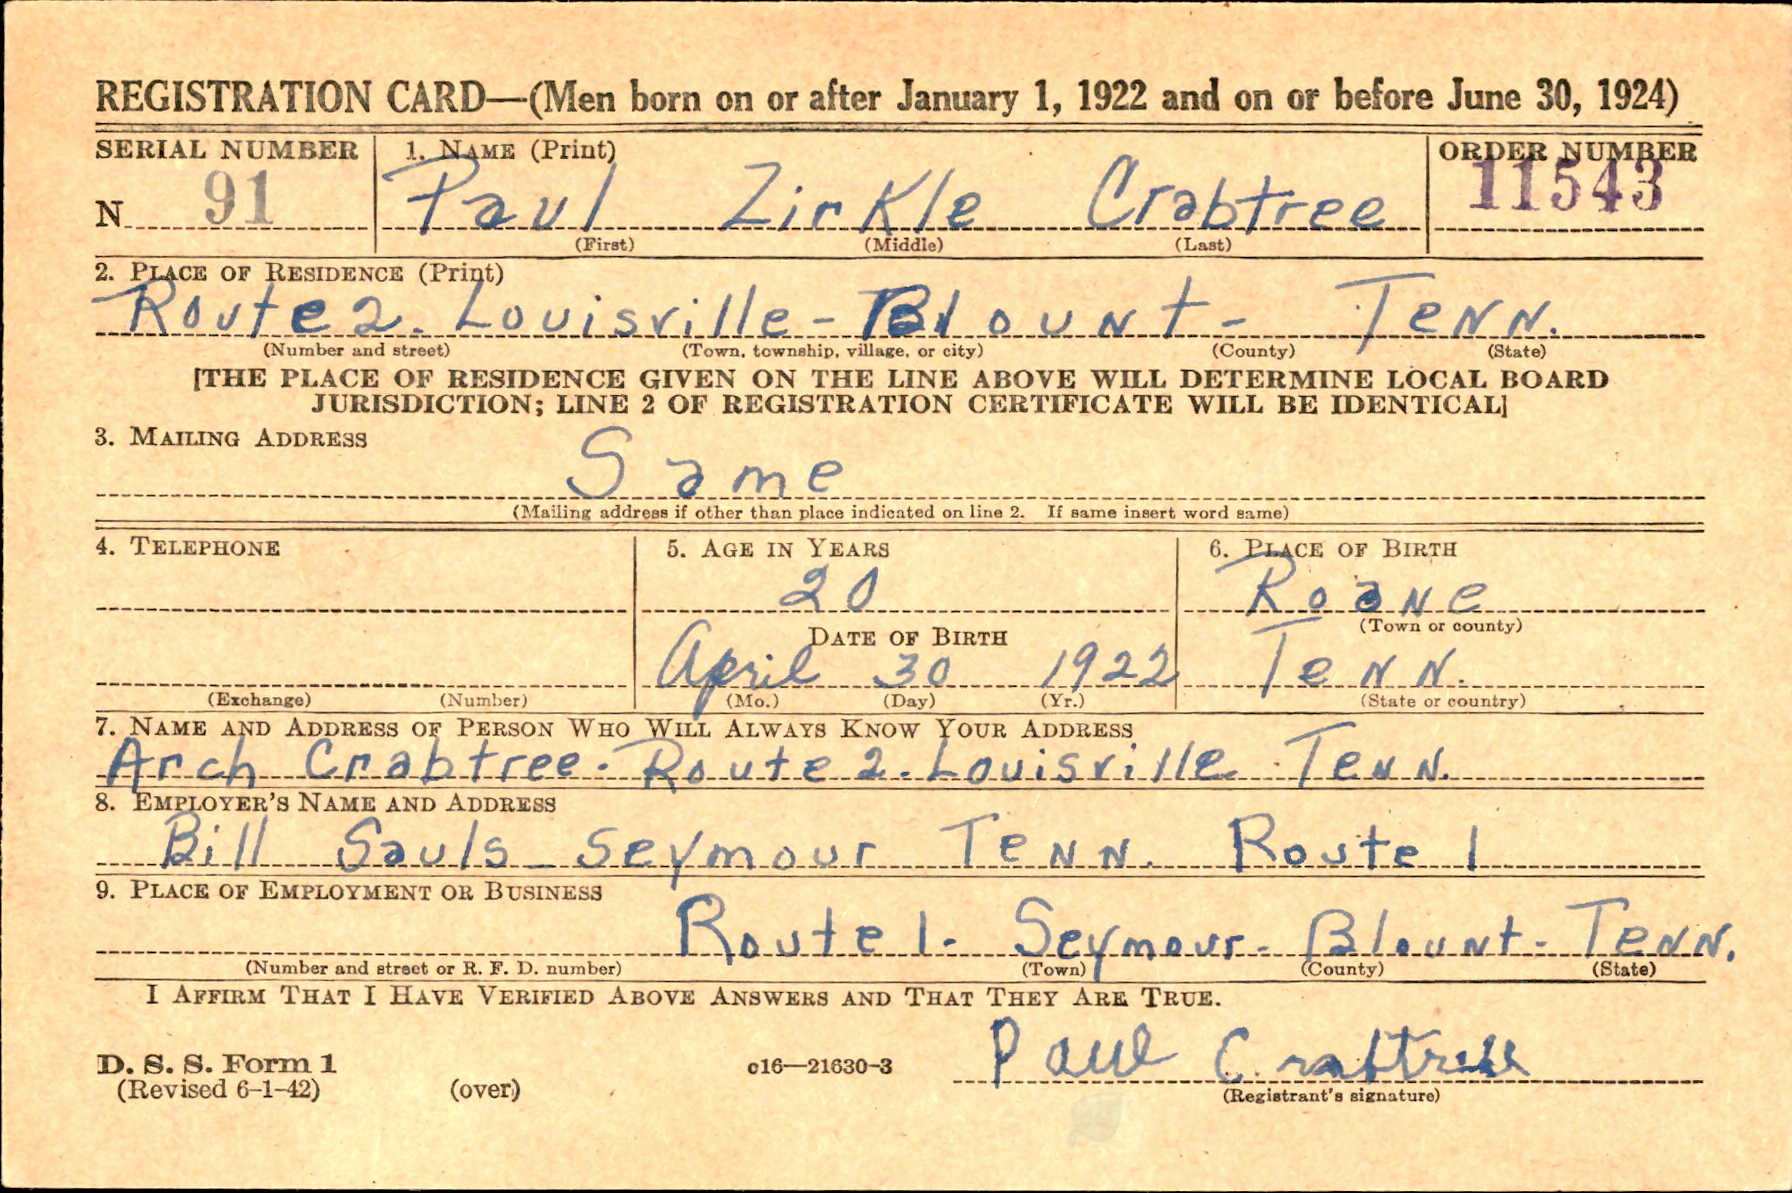 REGISTRATION CARD—(Men born on or after January 1, 1922 and on or before June 30, 1924)
SERIAL NUMBER 1. NAME (Print) ORDER NUMBER
N 91 Paul Zirkle Crabtree 11543
(First) (Middle) (Last)
2. PLACE OF RESIDENCE (Print)
Route 2. Louisville - Blount - Tenn.
(Number and street) (Town, township, village, or city) (County) (State)
[THE PLACE OF RESIDENCE GIVEN ON THE LINE ABOVE WILL DETERMINE LOCAL BOARD
JURISDICTION; LINE 2 OF REGISTRATION CERTIFICATE WILL BE IDENTICAL]
3. MAILING ADDRESS
Same
(Mailing address if other than place indicated on line 2. If same insert word same)
4. TELEPHONE 5. AGE IN YEARS 6. PLACE OF BIRTH
20 Roane
(Town or county)
DATE OF BIRTH
April 30 1922 Tenn.
(Exchange) (Number) (Mo.) (Day) (Yr.) (State or country)
7. NAME AND ADDRESS OF PERSON WHO WILL ALWAYS KNOW YOUR ADDRESS
Arch Crabtree. Route 2. Louisville Tenn.
8. EMPLOYER'S NAME AND ADDRESS
Bill Sauls - Seymour Tenn. Route 1
9. PLACE OF EMPLOYMENT OR BUSINESS
Route 1. - Seymour - Blount - Tenn.
(Number and street or R. F. D. number) (Town) (County) (State)
I AFFIRM THAT I HAVE VERIFIED ABOVE ANSWERS AND THAT THEY ARE TRUE.
D. S. S. Form 1
(Revised 6-1-42) (over) c16—21630-3 Paul Crabtree
(Registrant's signature)